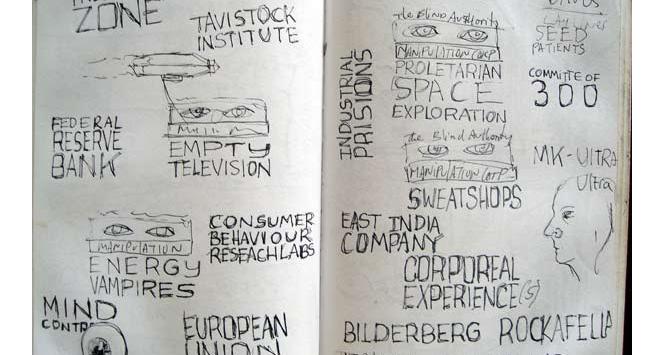 ZONE
TAVISTOCK
INSTITUTE
FEDERAL
RESERVE
BANK
EMPTY
TELEVISION
MANIPULATION
ENERGY
VAMPIRES
CONSUMER
BEHAVIOUR
RESEACH LABS
MIND
EUROPEAN
UNION
INDUSTRIAL
PRISIONS
the Blind Authority
MANIPULATION CORP
PROLETARIAN
SPACE
EXPLORATION
the Blind Authority
MANIPULATION CORP
SWEATSHOPS
EAST INDIA
COMPANY
CORPOREAL
EXPERIENCE(S)
BILDERBERG ROCKAFELLA
SEED
PATIENTS
COMMITTE OF
300
MK-Ultra
Ultra